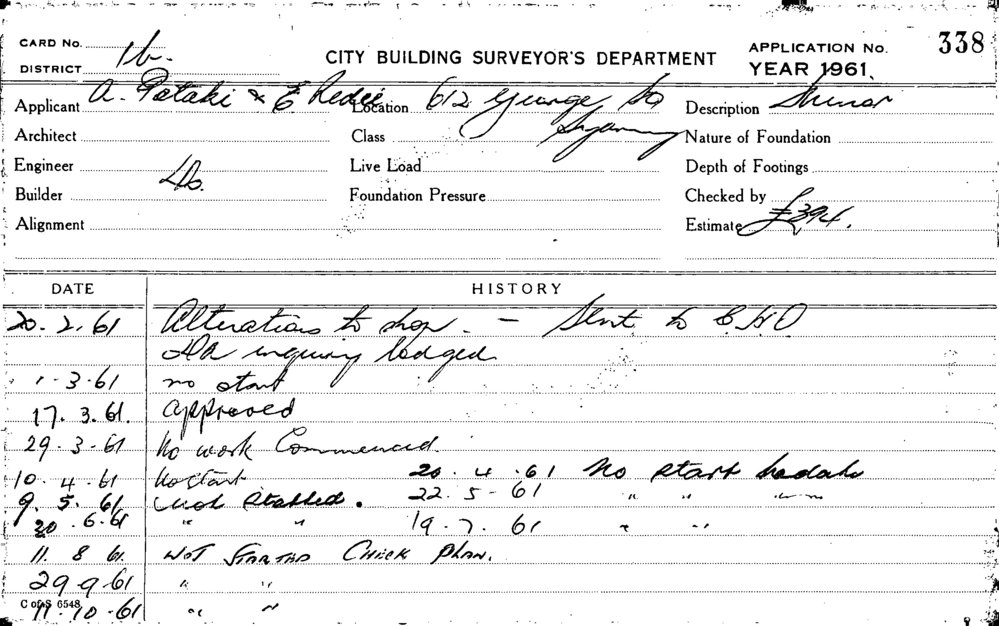 CARD No. 1b. CITY BUILDING SURVEYOR'S DEPARTMENT APPLICATION No. 338
DISTRICT YEAR 1961.
Applicant A. Pataki & E Location 612 George St Description Minor
Sydney
Architect Class Nature of Foundation
Engineer Do. Live Load Depth of Footings
Builder Foundation Pressure Checked by
Alignment Estimate £394.
DATE HISTORY
20. 2. 61 Alterations to shop. — Sent to CHO
DA inquiry lodged
1-3-61 no start
17. 3. 61. Approved
29-3-61 No work Commenced.
10. 4. 61 No start 20. 4. 61 No start
9. 5. 61 Not started. 22. 5 - 61 " " "
20. 6. 61 " " 19. 7. 61 " "
11. 8 61. NOT STARTED CHECK PLAN.
29 9 61 " "
11-10-61 " "
C of S 6548